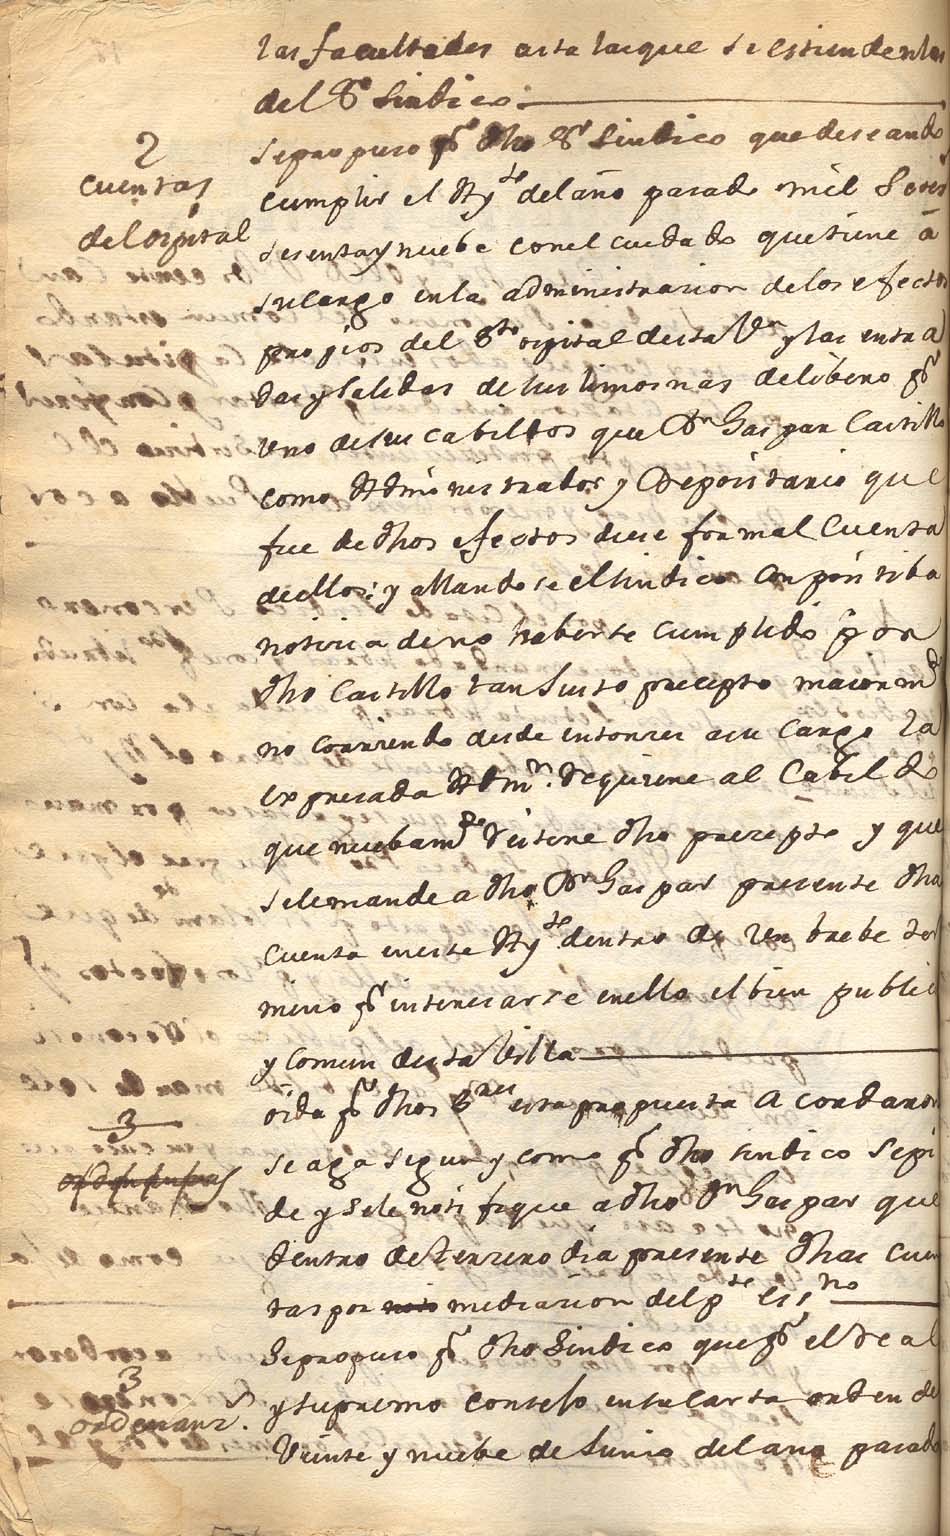 las facultades asta las que se estienden las
del Sr Sindico
2
cuentas
del ospital
Se propuso pr dho Sr Sindico que deseando
cumplir el Ayte del año pasado mil
sesenta y nuebe con el cuidado que tiene á
su cargo en la administrasion de los efectos
propios del Sto ospital desta Va y las entra
das y Salidas de sus limosnas delibero pr
uno de sus cabildos que Dn Gaspar Castillo
como Administrador y Depositario que
fue de dhos efectos diese formal Cuenta
de ellos; y allandose el sindico con positiba
notisia de no haberse cumplido por
dho Castillo tan Justo presepto maiormte
no corriendo desde entonses a su cargo la
expresada Admn. Requiere al Cabildo
que nuebamte Reitere dho presepto y que
se le mande a dho Dn Gaspar presente dha
cuenta en este Ayte dentro de un brebe ter
mino pr interesarse en ello el bien public
y comun desta Villa
3
oida pr dhos Sres esta propuesta Acordaron
se aga segun y como pr dho sindico se pi
de y se le notifique a dho Dn Gaspar que
dentro de terzero dia presente dhas cuen
tas por mediasion del pte essno
3
ordenanz.s
Se propuso pr dho Sindico que pr el Real
y Supremo Consejo en su carta orden de
Veinte y nuebe de Junio del año pasado